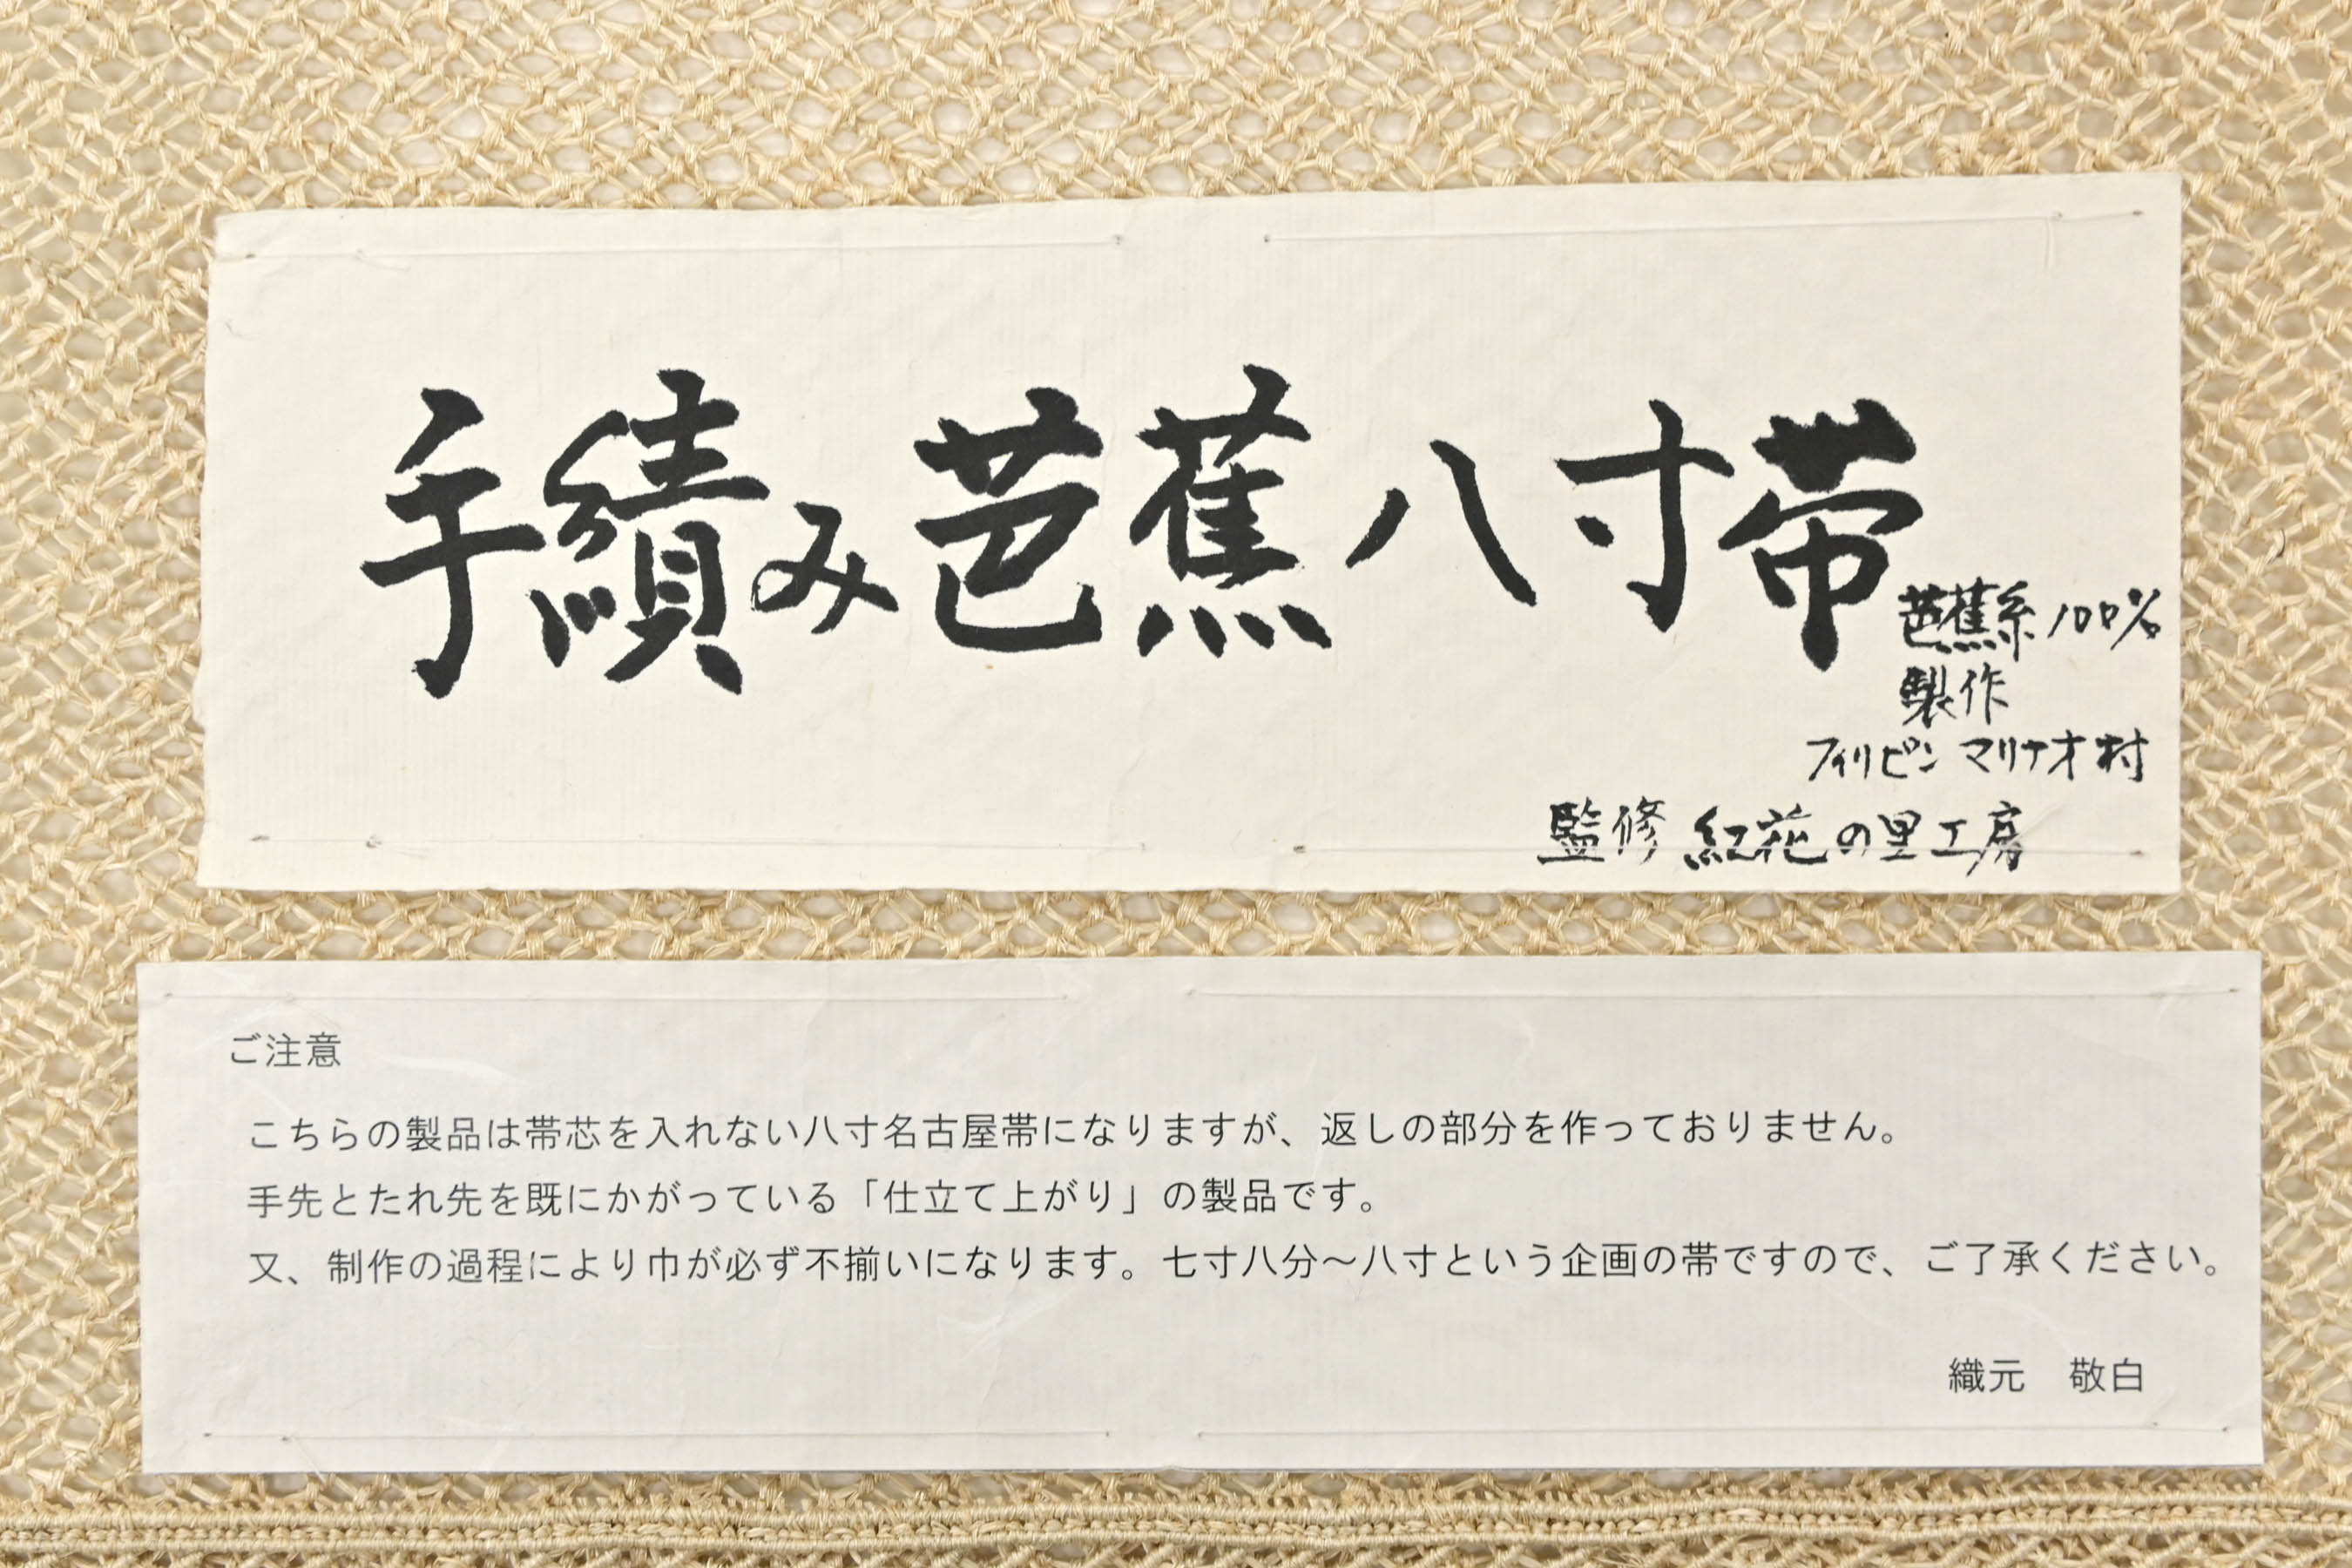 手績み芭蕉八寸帯
芭蕉糸100%
製作
フィリピン マリナオ村
監修 紅花の里工房
ご注意
こちらの製品は帯芯を入れない八寸名古屋帯になりますが、返しの部分を作っておりません。
手先とたれ先を既にかがっている「仕立て上がり」の製品です。
又、制作の過程により巾が必ず不揃いになります。七寸八分～八寸という企画の帯ですので、ご了承ください。
織元　敬白